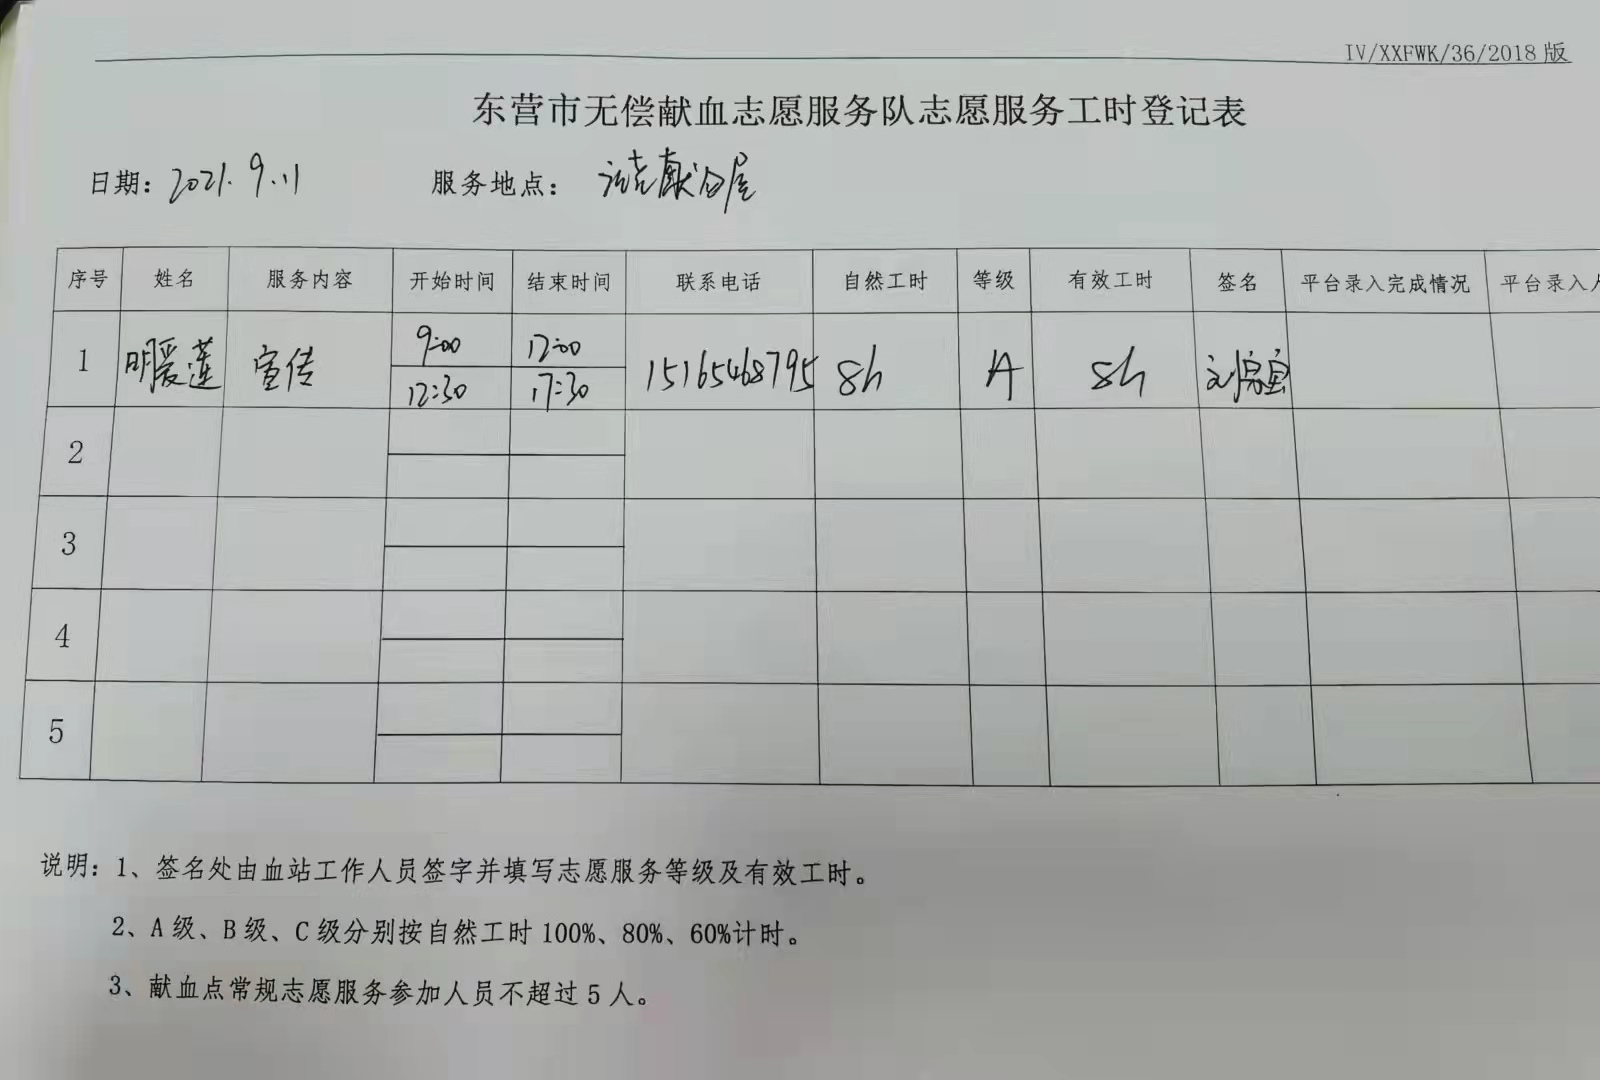 IV/XXFWK/36/2018 版
东营市无偿献血志愿服务队志愿服务工时登记表
日期: 2021.9.11 服务地点: 献血屋
序号 姓名 服务内容 开始时间 结束时间 联系电话 自然工时 等级 有效工时 签名 平台录入完成情况 平台录入人
1 明爱莲 宣传 9:00 12:00 15165468795 8h A 8h
12:30 17:30
2
3
4
5
说明: 1、签名处由血站工作人员签字并填写志愿服务等级及有效工时。
2、A 级、B 级、C 级分别按自然工时 100%、80%、60%计时。
3、献血点常规志愿服务参加人员不超过 5 人。